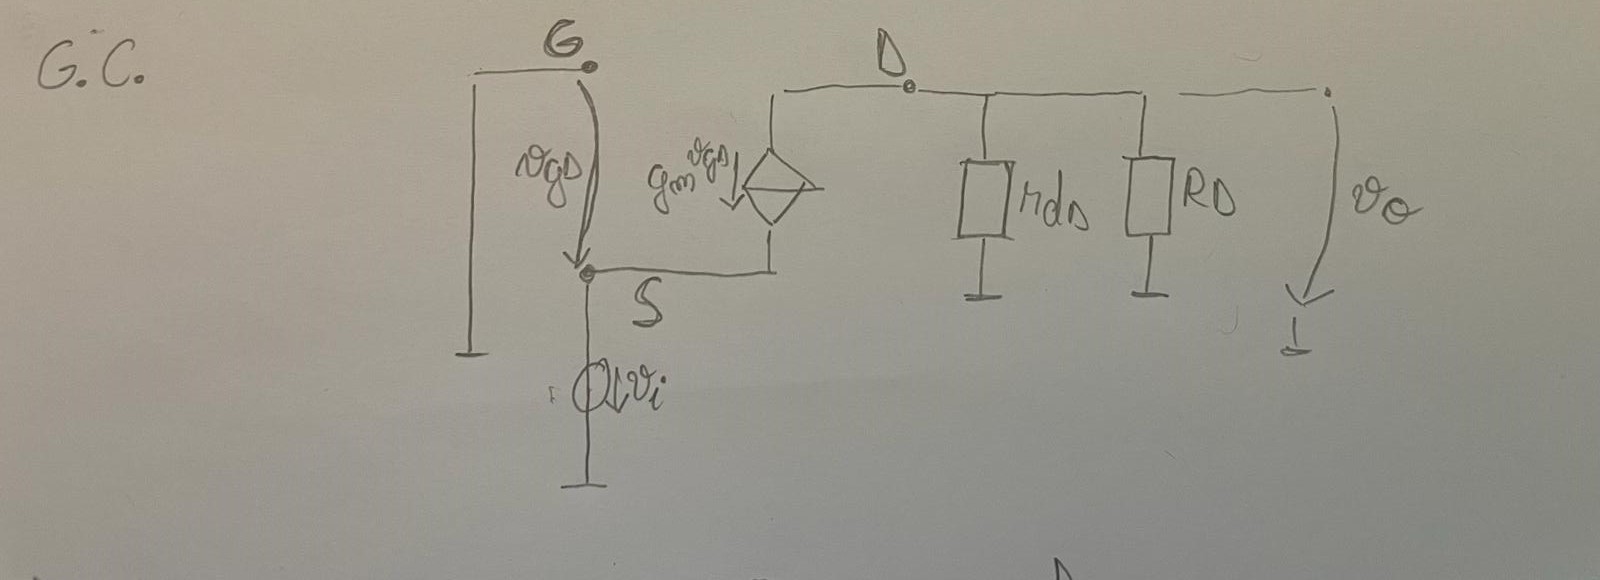 G.C.
G
D
vgs
gm vgs
rds
RD
vo
S
vi